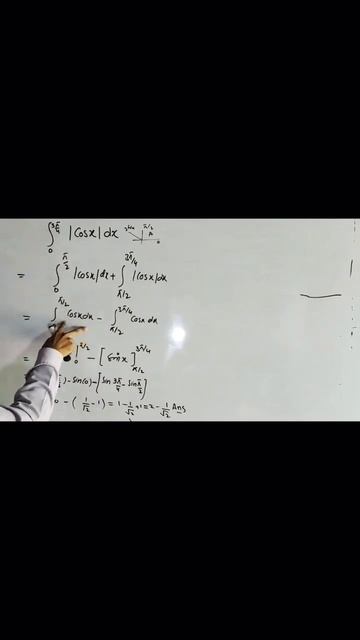 ∫₀^{3π/4} |Cosx| dx 3π/4 π/2 A 0
= ∫₀^{π/2} |Cosx| dx + ∫_{π/2}^{3π/4} |Cosx| dx
= ∫₀^{π/2} Cosx dx − ∫_{π/2}^{3π/4} Cosx dx
= |₀^{π/2} − [Sinx]_{π/2}^{3π/4}
) − Sin(0) − [Sin 3π/4 − Sin π/2]
0 − (1/√2 − 1) = 1 − 1/√2 + 1 = 2 − 1/√2 Ans